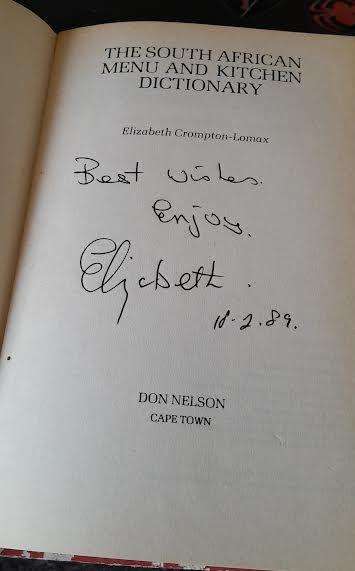 THE SOUTH AFRICAN
MENU AND KITCHEN
DICTIONARY
Elizabeth Crompton-Lomax
Best wishes.
Enjoy.
Elizabeth.
18-2.89.
DON NELSON
CAPE TOWN